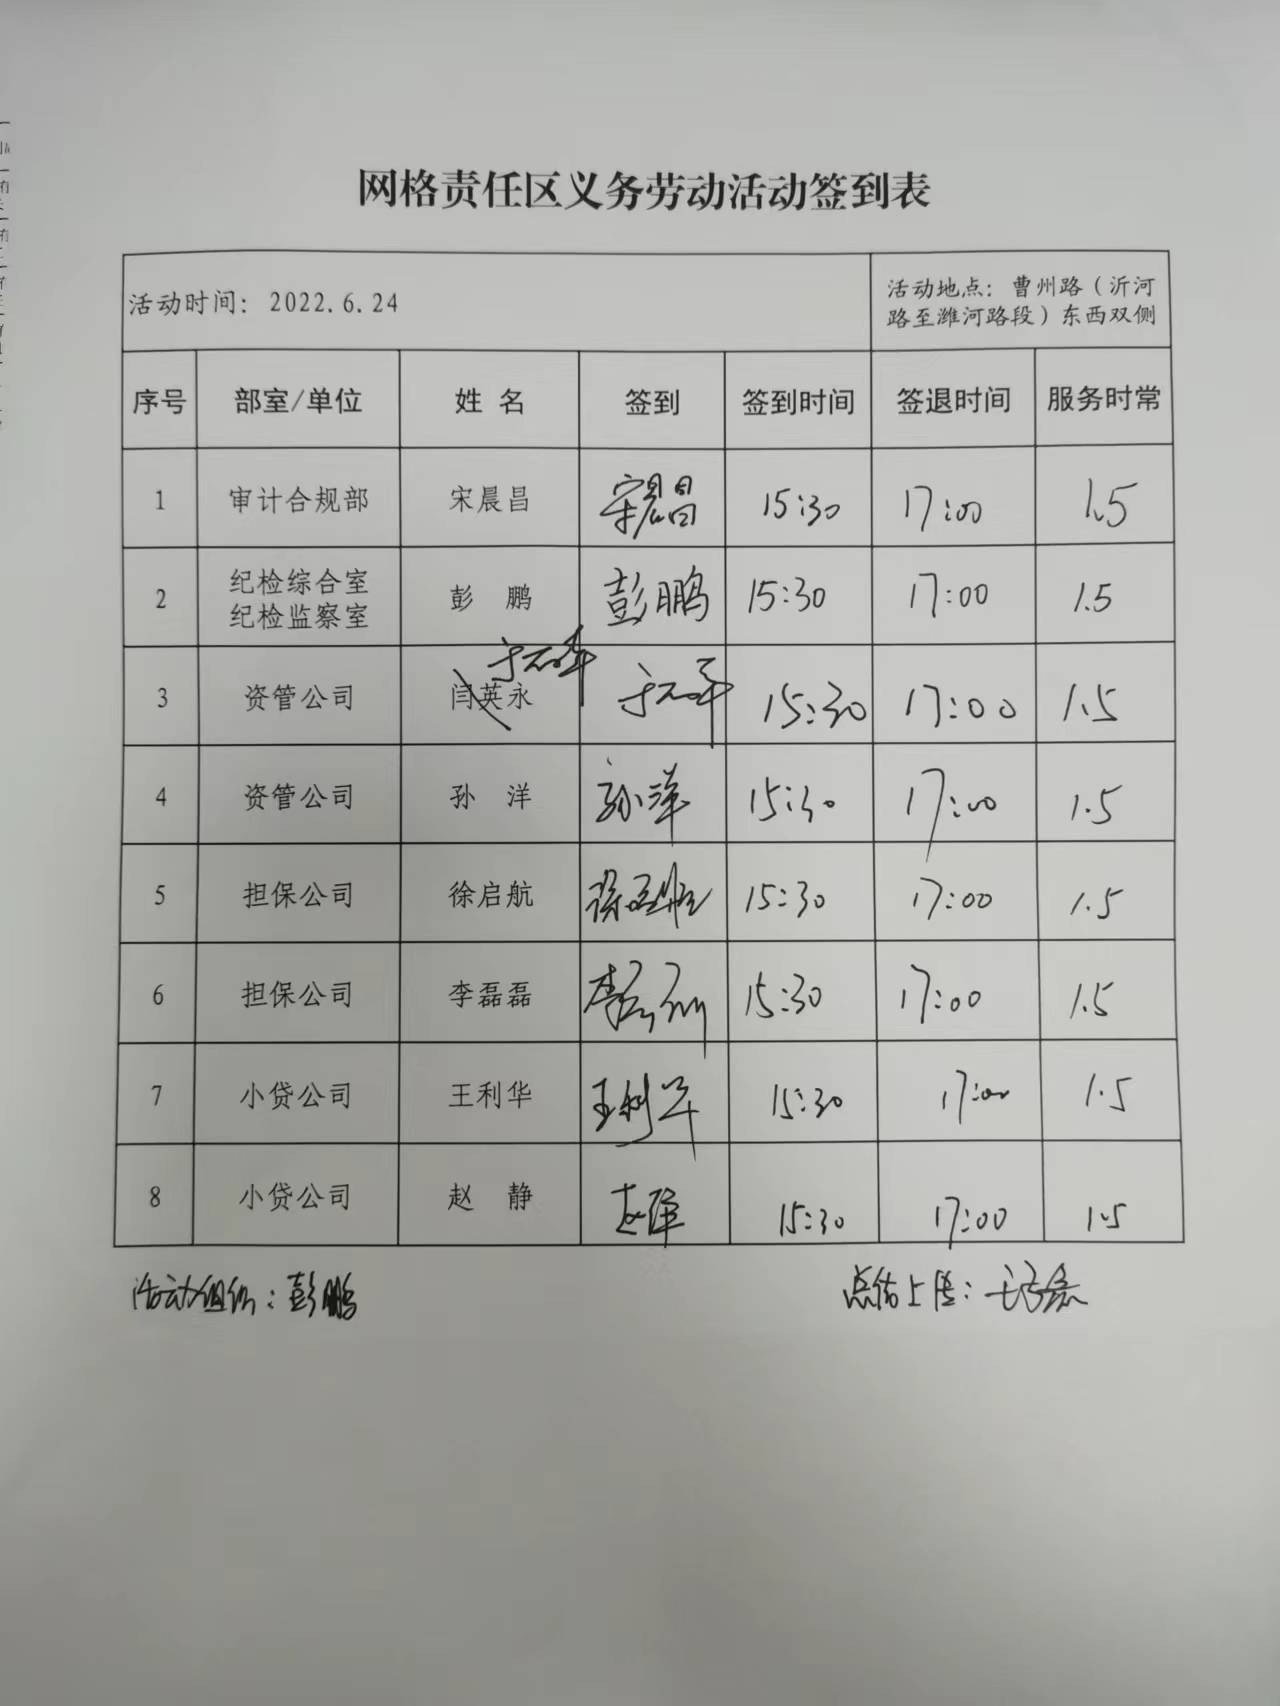 网格责任区义务劳动活动签到表
活动时间：2022.6.24
活动地点：曹州路（沂河
路至潍河路段）东西双侧
序号 部室/单位 姓 名 签到 签到时间 签退时间 服务时常
1 审计合规部 宋晨昌 宋晨昌 15:30 17:00 1.5
2 纪检综合室 纪检监察室 彭 鹏 彭鹏 15:30 17:00 1.5
3 资管公司 闫英永 15:30 17:00 1.5
4 资管公司 孙 洋 孙洋 15:30 17:00 1.5
5 担保公司 徐启航 徐启航 15:30 17:00 1.5
6 担保公司 李磊磊 李磊磊 15:30 17:00 1.5
7 小贷公司 王利华 王利华 15:30 17:00 1.5
8 小贷公司 赵 静 赵静 15:30 17:00 1.5
活动组织：彭鹏